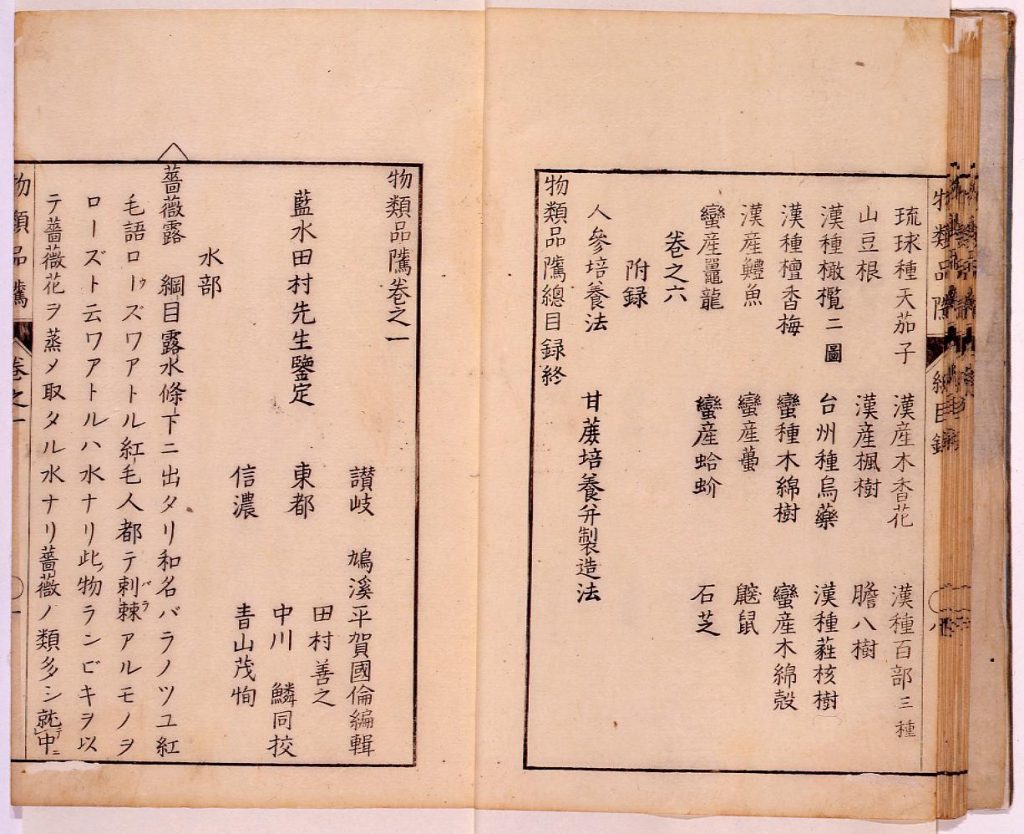 琉球種天茄子 漢産木香花 漢種百部三種
山豆根 漢産楓樹 膽八樹
漢種橄欖二圖 台州種烏藥 漢種蕤核樹
漢種檀香梅 蠻種木綿樹 蠻産木綿殼
漢産鱧魚 蠻産 鼠
蠻産鼉龍 蠻産蛤蚧 石芝
巻之六
附録
人參培養法 甘蔗培養并製造法
物類品隲總目録終
物類品隲巻之一
讃岐 鳩溪平賀國倫編輯
藍水田村先生鑒定 東都 田村善之
中川 鱗同挍
信濃 青山茂恂
水部
薔薇露 綱目露水條下ニ出タリ和名バラノツユ紅
毛語ローズワアトル紅毛人都テ刺棘バラアルモノヲ
ローズト云ワアトルハ水ナリ此物ランビキヲ以
テ薔薇花ヲ蒸メ取タル水ナリ薔薇ノ類多シ就テ中ニ
物類品隲 巻之一 一